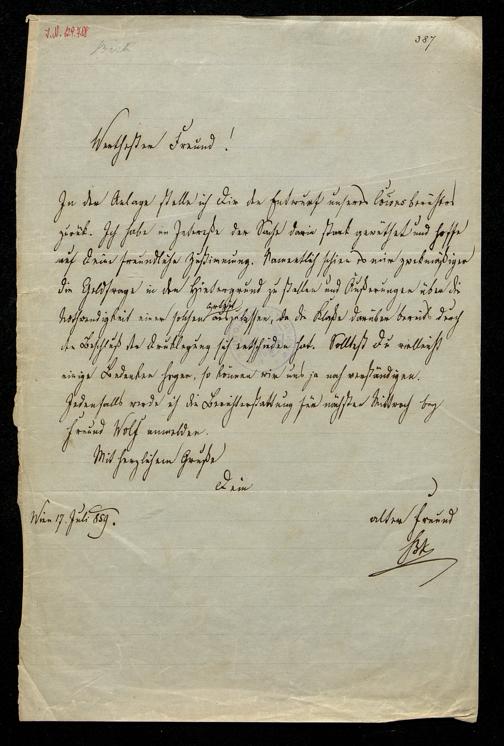 I.N. 129.788
Bück
387
Werthester Freund!
In der Anlage stelle ich Dir den Entwurf unseres Commissionsberichtes
zurück. Ich habe im Interesse der Sache darin stark gewüthet und hoffe
auf Deine freundliche Zustimmung. Namentlich schien es mir zweckmäßiger
die Geldfrage in den Hintergrund zu stellen und Äußerungen über die
Nothwendigkeit einer solchen auszulassen, da die Klaße darüber bereits durch
den Beschluß der Drucklegung sich entschieden hat. Solltest Du vielleicht
einige Bedenken hegen, so können wir uns ja noch verständigen.
Jedenfalls werde ich die Berichterstattung für nächsten Mittwoch bey
Freund Wolf anmelden.
Mit herzlichem Gruße
Dein
Wien 17. Juli 859.
alter Freund